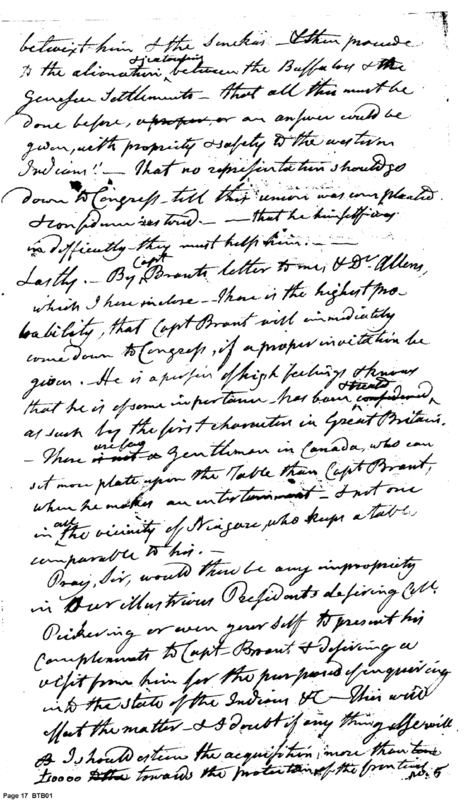 betwixt him & the Senekas - & then proceede
to the alienation & jealousies between the Buffaloe & the
Genesee Settlements - that all this must be
done before, a proper, or an answer could be
given, with propriety & safety to the western
Indians" - That no representation should go
down to Congress till this union was compleated
& confidence restored. - - that he himself was
in difficulty they must help him. - -
Lastly. - By Capt Brants letter to me, & Dr Allens,
which I here inclose - There is the highest pro-
bability, that Capt Brant will immediately
come down to Congress, if a proper invitation be
given. He is a person of high feelings & knows
that he is of some importance - has been considered, treated
as such by the first characters in Great Britain.
- There is not a are few Gentleman in Canada, who can
set more plate upon the Table than Capt Brant,
when he makes an entertainment - & not one
in all the vicinity of Niagara, who keeps a table
comparable to his. -
Pray, Sir, would there be any impropriety
in Our illustrious Presidents desiring Coll.
Pickering or even your self to present his
complements to Capt Brant & desiring a
visit from him for the purposes of inquiring
into the state of the Indians &c - This will
effect the matter - & I doubt if any thing else will
I should esteem the acquisition, more than
£10000 towards the protection of the frontiers
No. 5
Page 17 BTB01